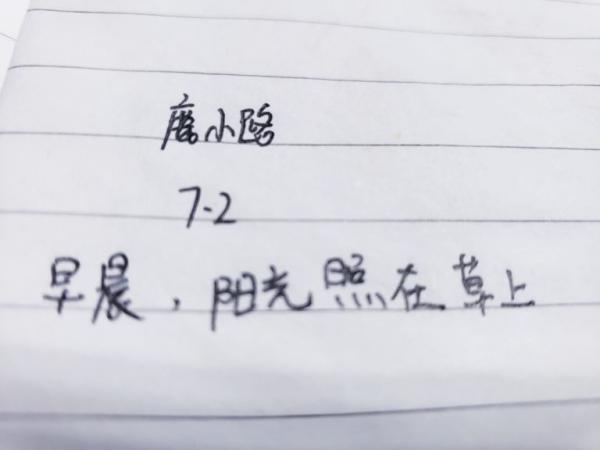 小路
7-2
早晨，阳光照在草上